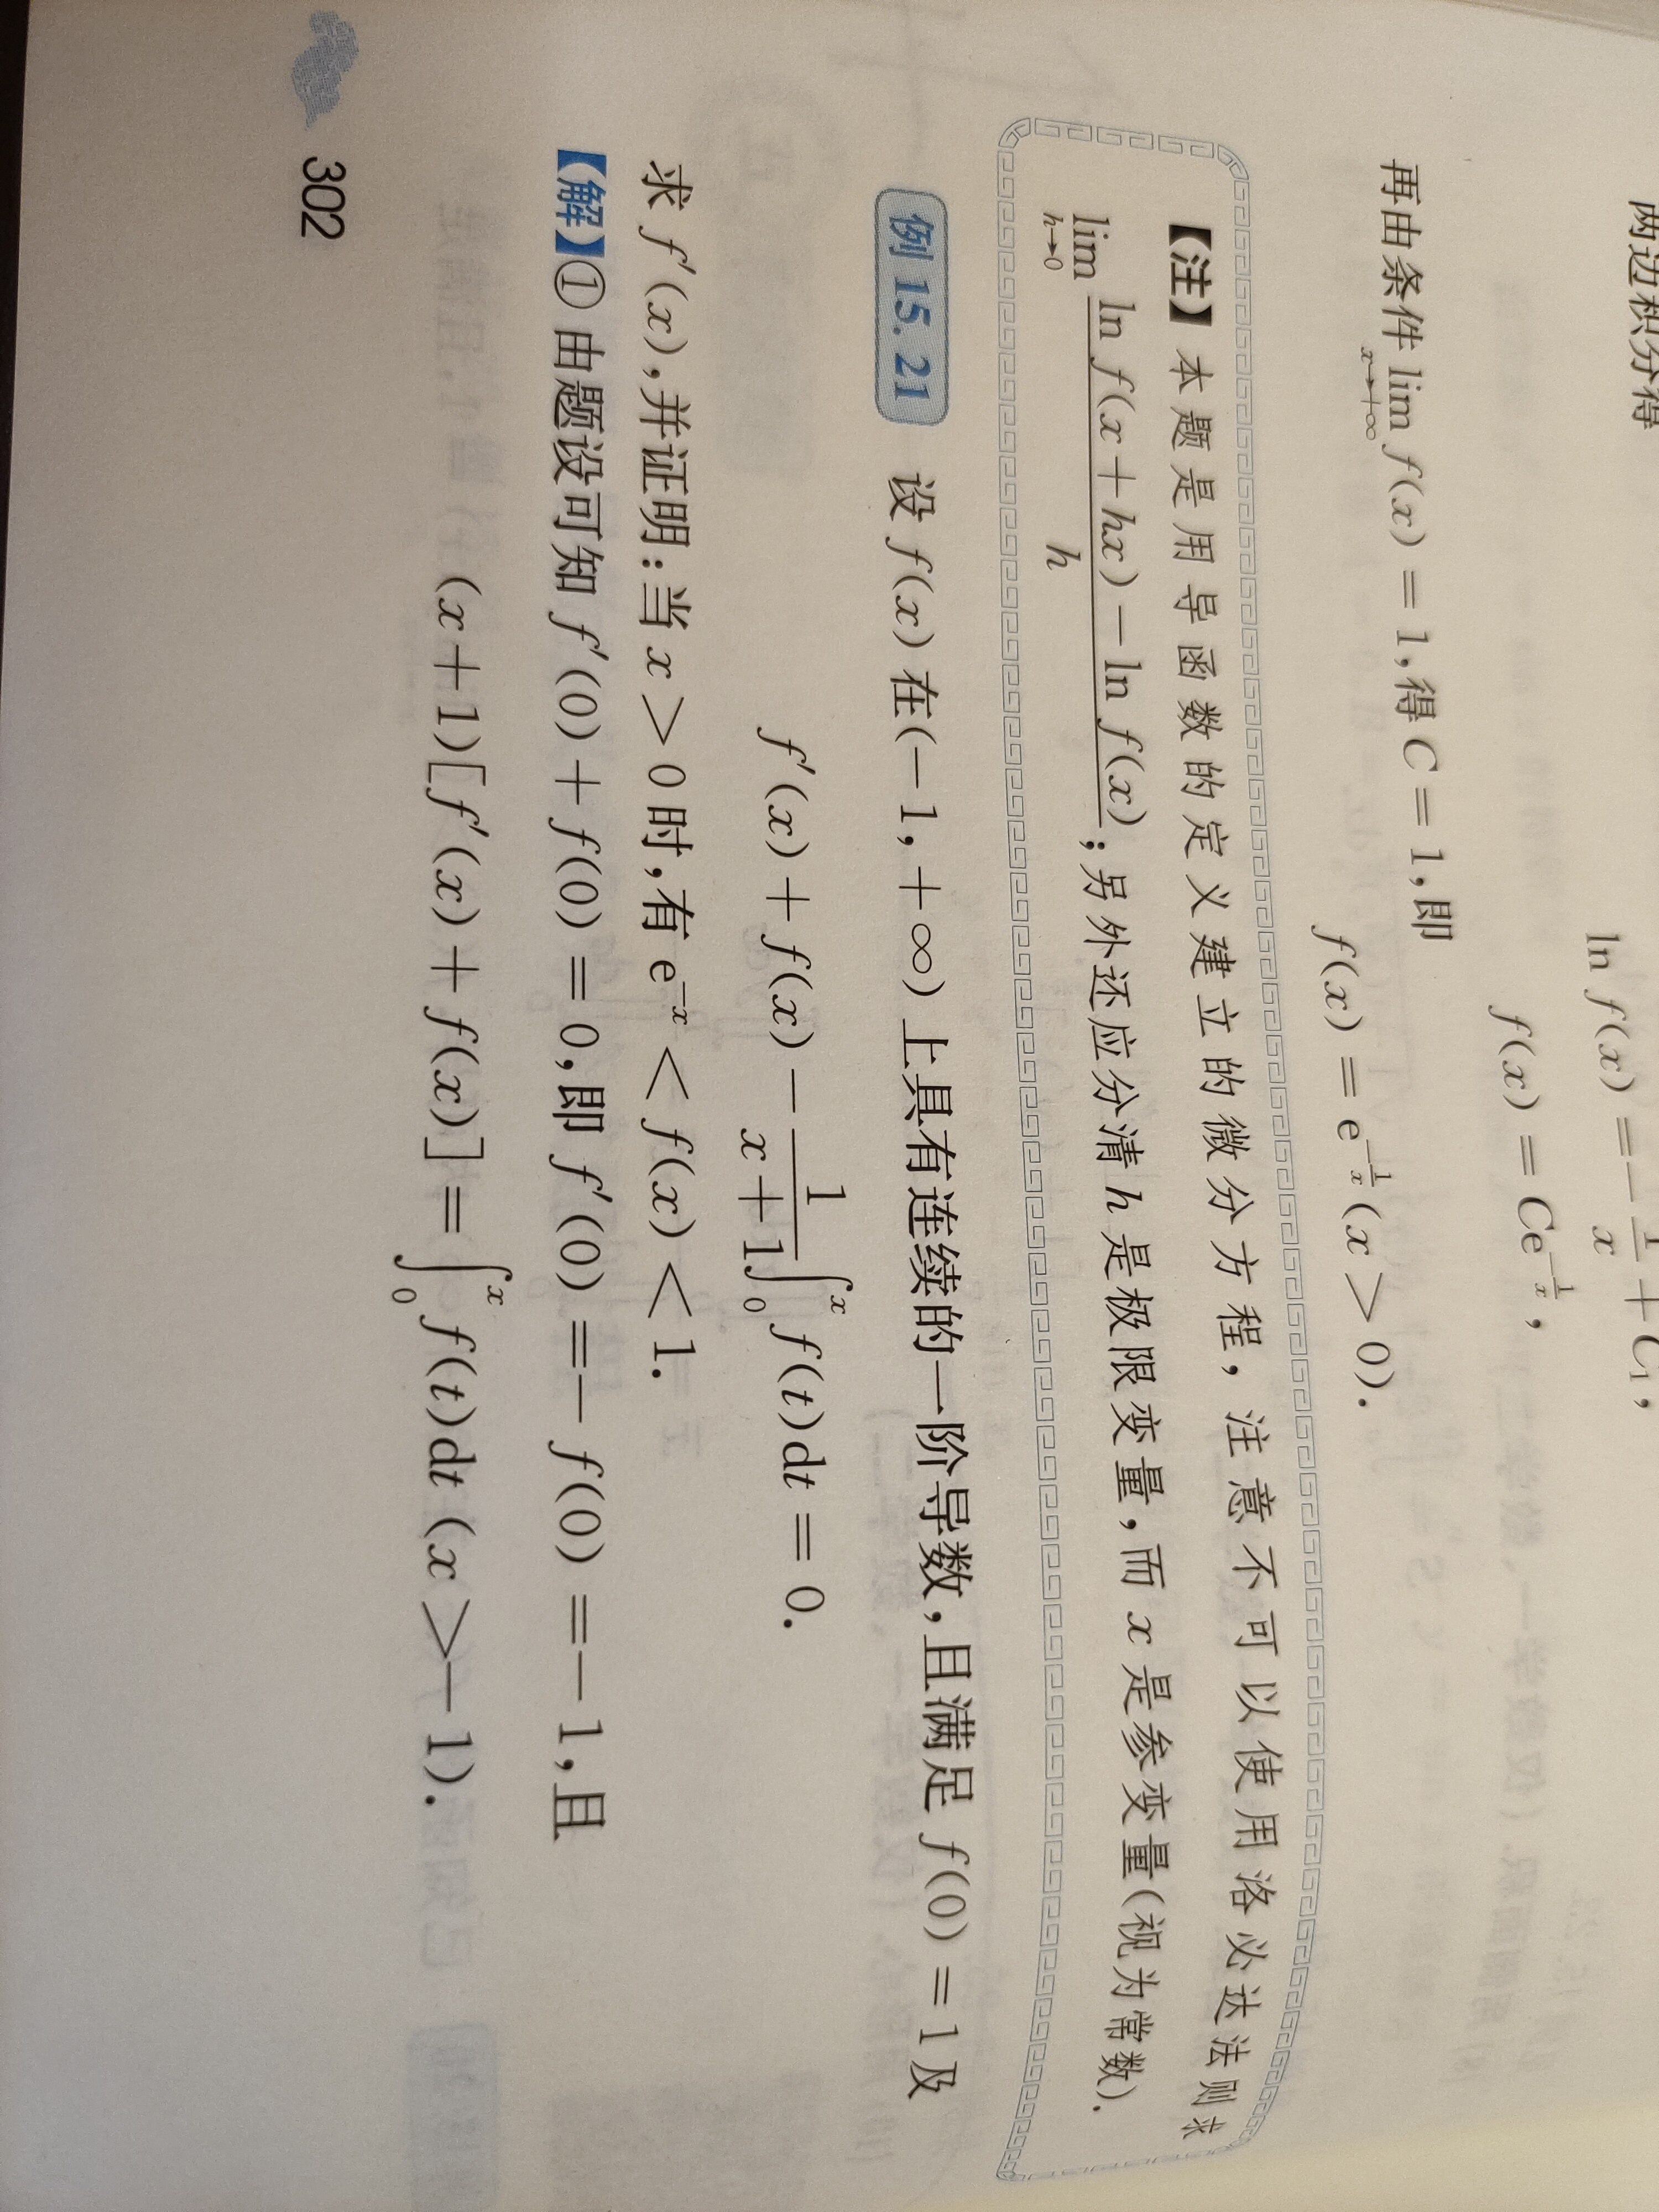 两边积分得
ln f(x) = -1/x + C₁,
f(x) = Ce^{-1/x},
再由条件 lim_{x→+∞} f(x) = 1,得 C = 1,即
f(x) = e^{-1/x} (x > 0).
【注】本题是用导函数的定义建立的微分方程,注意不可以使用洛必达法则求
lim_{h→0} (ln f(x+hx) - ln f(x))/h ;另外还应分清 h 是极限变量,而 x 是参变量(视为常数).
例 15.21 设 f(x) 在(-1,+∞) 上具有连续的一阶导数,且满足 f(0) = 1 及
f′(x) + f(x) - 1/(x+1) ∫₀ˣ f(t)dt = 0.
求 f′(x),并证明:当 x > 0 时,有 e⁻ˣ < f(x) < 1.
【解】① 由题设可知 f′(0) + f(0) = 0,即 f′(0) =- f(0) =- 1,且
(x+1)[f′(x) + f(x)] = ∫₀ˣ f(t)dt (x >- 1).
302